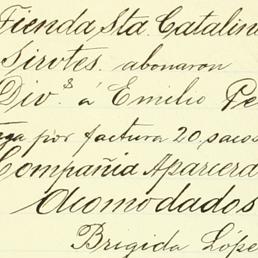 Tienda Sta. Catalina
Sirotes. abonaron
Div.s á Emilio Pe
por factura 20, sacos
Compañia Aparcera
Acomodados
Brigida López